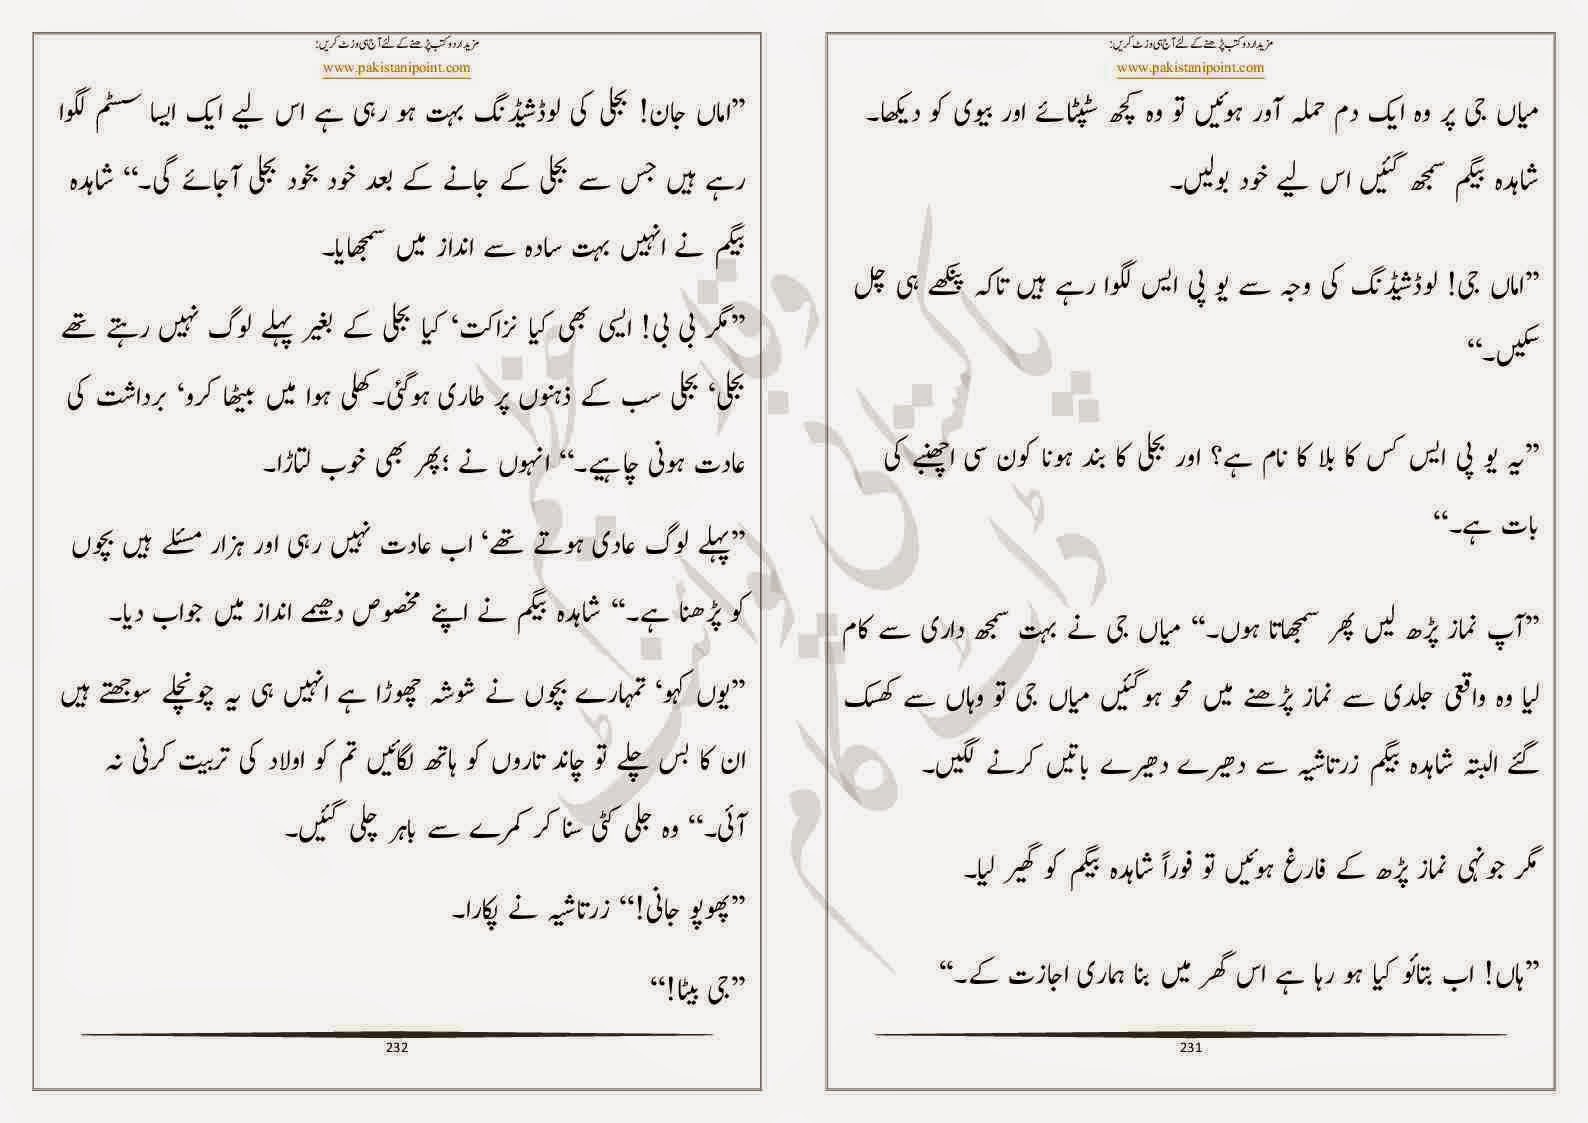 مزید اردو کتب پڑھنے کے لئے آج ہی وزٹ کریں:
www.pakistanipoint.com
میاں جی پر وہ ایک دم حملہ آور ہوئیں تو وہ کچھ سٹپٹائے اور بیوی کو دیکھا۔
شاہدہ بیگم سمجھ گئیں اس لیے خود بولیں۔
”اماں جی! لوڈشیڈنگ کی وجہ سے یو پی ایس لگوا رہے ہیں تاکہ پنکھے ہی چل
سکیں۔“
”یہ یو پی ایس کس کا بلا کا نام ہے؟ اور بجلی کا بند ہونا کون سی اچھنبے کی
بات ہے۔“
”آپ نماز پڑھ لیں پھر سمجھاتا ہوں۔“ میاں جی نے بہت سمجھ داری سے کام
لیا وہ واقعی جلدی سے نماز پڑھنے میں محو ہوگئیں میاں جی تو وہاں سے کھسک
گئے البتہ شاہدہ بیگم زرتاشیہ سے دھیرے دھیرے باتیں کرنے لگیں۔
مگر جونہی نماز پڑھ کے فارغ ہوئیں تو فوراً شاہدہ بیگم کو گھیر لیا۔
”ہاں! اب بتائو کیا ہو رہا ہے اس گھر میں بنا ہماری اجازت کے۔“
231
مزید اردو کتب پڑھنے کے لئے آج ہی وزٹ کریں:
www.pakistanipoint.com
”اماں جان! بجلی کی لوڈشیڈنگ بہت ہو رہی ہے اس لیے ایک ایسا سسٹم لگوا
رہے ہیں جس سے بجلی کے جانے کے بعد خود بخود بجلی آجائے گی۔“ شاہدہ
بیگم نے انہیں بہت سادہ سے انداز میں سمجھایا۔
”مگر بی بی! ایسی بھی کیا نزاکت، کیا بجلی کے بغیر پہلے لوگ نہیں رہتے تھے
بجلی، بجلی سب کے ذہنوں پر طاری ہوگئی۔ کھلی ہوا میں بیٹھا کرو، برداشت کی
عادت ہونی چاہیے۔“ انہوں نے ؛پھر بھی خوب لتاڑا۔
”پہلے لوگ عادی ہوتے تھے، اب عادت نہیں رہی اور ہزار مسئلے ہیں بچوں
کو پڑھنا ہے۔“ شاہدہ بیگم نے اپنے مخصوص دھیمے انداز میں جواب دیا۔
”یوں کہو، تمہارے بچوں نے شوشہ چھوڑا ہے انہیں ہی یہ چونچلے سوجھتے ہیں
ان کا بس چلے تو چاند تاروں کو ہاتھ لگائیں تم کو اولاد کی تربیت کرنی نہ
آئی۔“ وہ جلی کٹی سنا کر کمرے سے باہر چلی گئیں۔
”پھوپو جانی!“ زرتاشیہ نے پکارا۔
”جی بیٹا!“
232